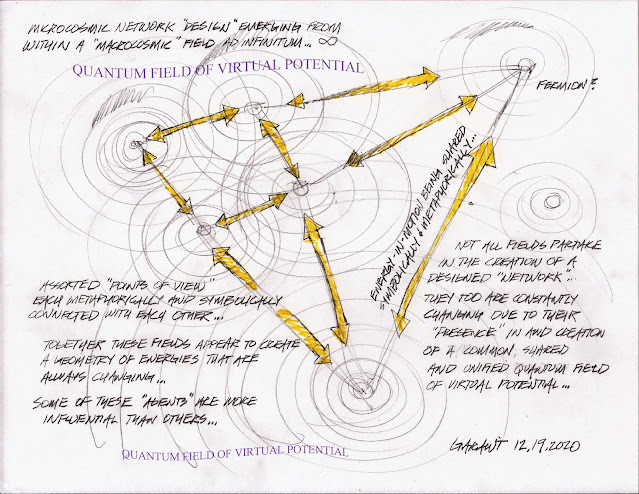 MICROCOSMIC NETWORK "DESIGN" EMERGING FROM
WITHIN A "MACROCOSMIC" FIELD AD INFINITUM... ∞
QUANTUM FIELD OF VIRTUAL POTENTIAL
FERMION?
ENERGY-IN-MOTION BEING SHARED
SYMBOLICALLY & METAPHORICALLY...
NOT ALL FIELDS PARTAKE
IN THE CREATION OF A
DESIGNED "NETWORK"...
THEY TOO ARE CONSTANTLY
CHANGING DUE TO THEIR
"PRESENCE" IN AND CREATION
OF A COMMON, SHARED
AND UNIFIED QUANTUM FIELD
OF VIRTUAL POTENTIAL...
ASSORTED "POINTS OF VIEW"
EACH METAPHORICALLY AND SYMBOLICALLY
CONNECTED WITH EACH OTHER...
TOGETHER THESE FIELDS APPEAR TO CREATE
A GEOMETRY OF ENERGIES THAT ARE
ALWAYS CHANGING...
SOME OF THESE "AGENTS" ARE MORE
INFLUENTIAL THAN OTHERS...
QUANTUM FIELD OF VIRTUAL POTENTIAL
GARANT 12,19,2020